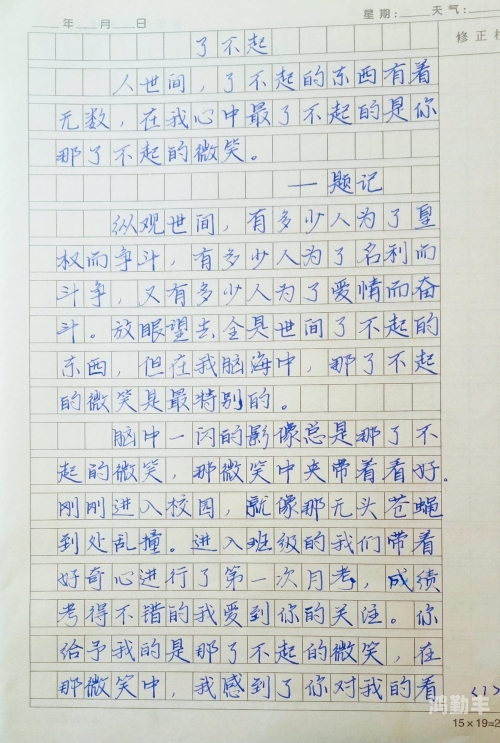 年 月 日 星期： 天气：
修正栏
了不起
人世间，了不起的东西有着
无数，在我心中最了不起的是你
那了不起的微笑。
—题记
纵观世间，有多少人为了皇
权而争斗，有多少人为了名利而
斗争，又有多少人为了爱情而奋
斗。放眼望去全是世间了不起的
东西，但在我脑海中，那了不起
的微笑是最特别的。
脑中一闪的影像总是那了不
起的微笑，那微笑中夹带着看好。
刚刚进入校园，就像那无头苍蝇
到处乱撞。进入班级的我们带着
好奇心进行了第一次月考，成绩
考得不错的我爱到你的关注。你
给予我的是那了不起的微笑，在
那微笑中，我感到了你对我的看
<1>
鸿勤丰
15×19=2